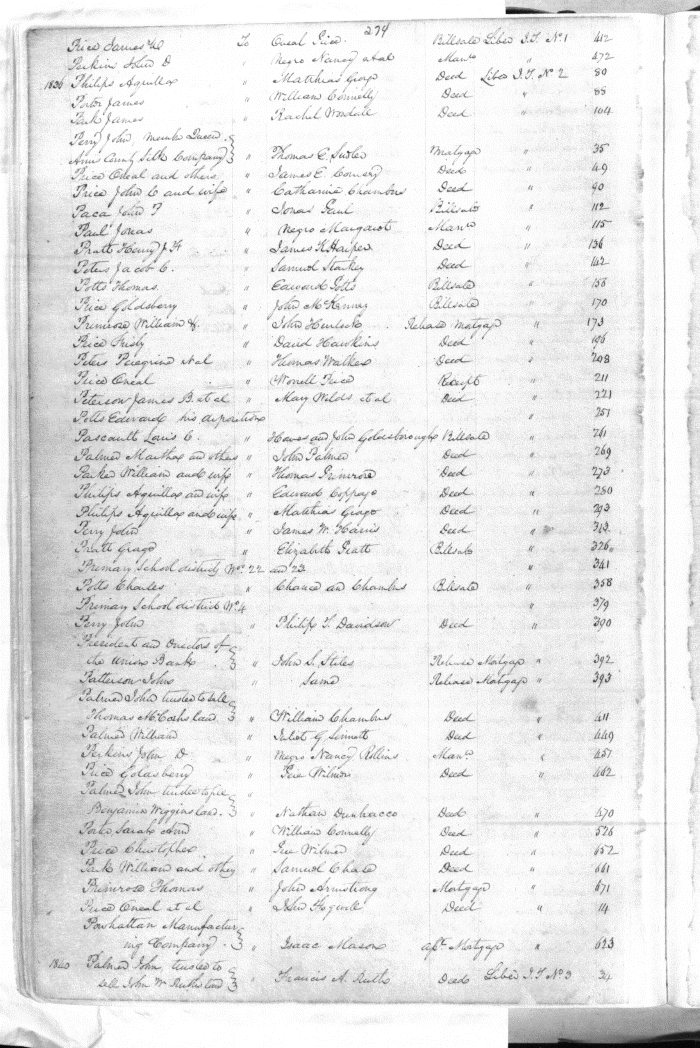 274
Price James W To Oneal Price. Billsale Liber J.T. No. 1 412
Perkins John D " Negro Nancy et al Manu " 472
1836 Philips Aquilla " Matthias George Deed Liber J.T. No. 2 80
Porter James " William Connelly Deed " 88
Park James " Rachel Deed " 104
Perry John, Memb Queen
Anns County Silk Company " Thomas C. Mortgage " 35
Price Oneal and others " James E. Deed " 49
Price John C and wife " Catharine Chambers Deed " 90
Paca John P " Jonas Paul Billsale " 112
Paul Jonas " Negro Margaret Manu " 115
Pratt Henry J. F. " James K. Harper Deed " 136
Peters Jacob C. " Samuel Starkey Deed " 142
Potts Thomas. " Edward Potts Billsale " 158
Price Goldsbery " John McKenney Billsale " 170
Primrose William & " John Release Mortgage " 173
Price Fristy " David Hawkins Deed " 196
Peters Peregrine et al " Thomas Walker Deed " 208
Price Oneal " Worrell Price Receipt " 211
Peterson James B. et al " Mary Wilds et al Deed " 221
Potts Edward his deposition " 251
Pascault Louis C. " Howes and John Goldsborough Billsale " 241
Palmer Martha an others " John Palmer Deed " 269
Parker William and wife " Thomas Primrose Deed " 273
Philips Aquilla an wife " Edward Coppage Deed " 280
Philips Aquilla and wife " Matthias Deed " 293
Perry John " James W. Harris Deed " 313
Pratt " Elizabeth Pratt Billsale " 326
Primary School district No. 22 and 23 " 341
Potts Charles " Chance an Chambers Billsale " 358
Primary School district No 4 " 379
Perry John " Philip T. Davidson Deed " 390
President an Directors of
the Union Bank " John S. Stiles Release Mortgage " 392
Patterson John " Same Release Mortgage " 393
Palmer John trustee to sell
Thomas McCosh land. " William Chambers Deed " 411
Palmer William " Juliet G. Sinnott Deed " 449
Perkins John D " Negro Nancy Rollins Manu " 457
Price Goldsberry " Geo Wilmer Deed " 462
Palmer John trustee to sell "
Benjamin Wiggins land. " Nathan Dunhacco Deed " 470
Park Sarah Ann " William Connelly Deed " 526
Price Christopher " Geo Wilmer Deed " 652
Park William and others " Samuel Chase Deed " 661
Primrose Thomas " John Armstrong Mortgage " 671
Price Oneal et al " John Deed " 14
Powhattan Manufactur
ing Company. " Isaac Mason Mortgage " 623
1840 Palmer John, trustee to
sell John W Ruths land " Francis A. Ruth Deed Liber J.T. No 3 34